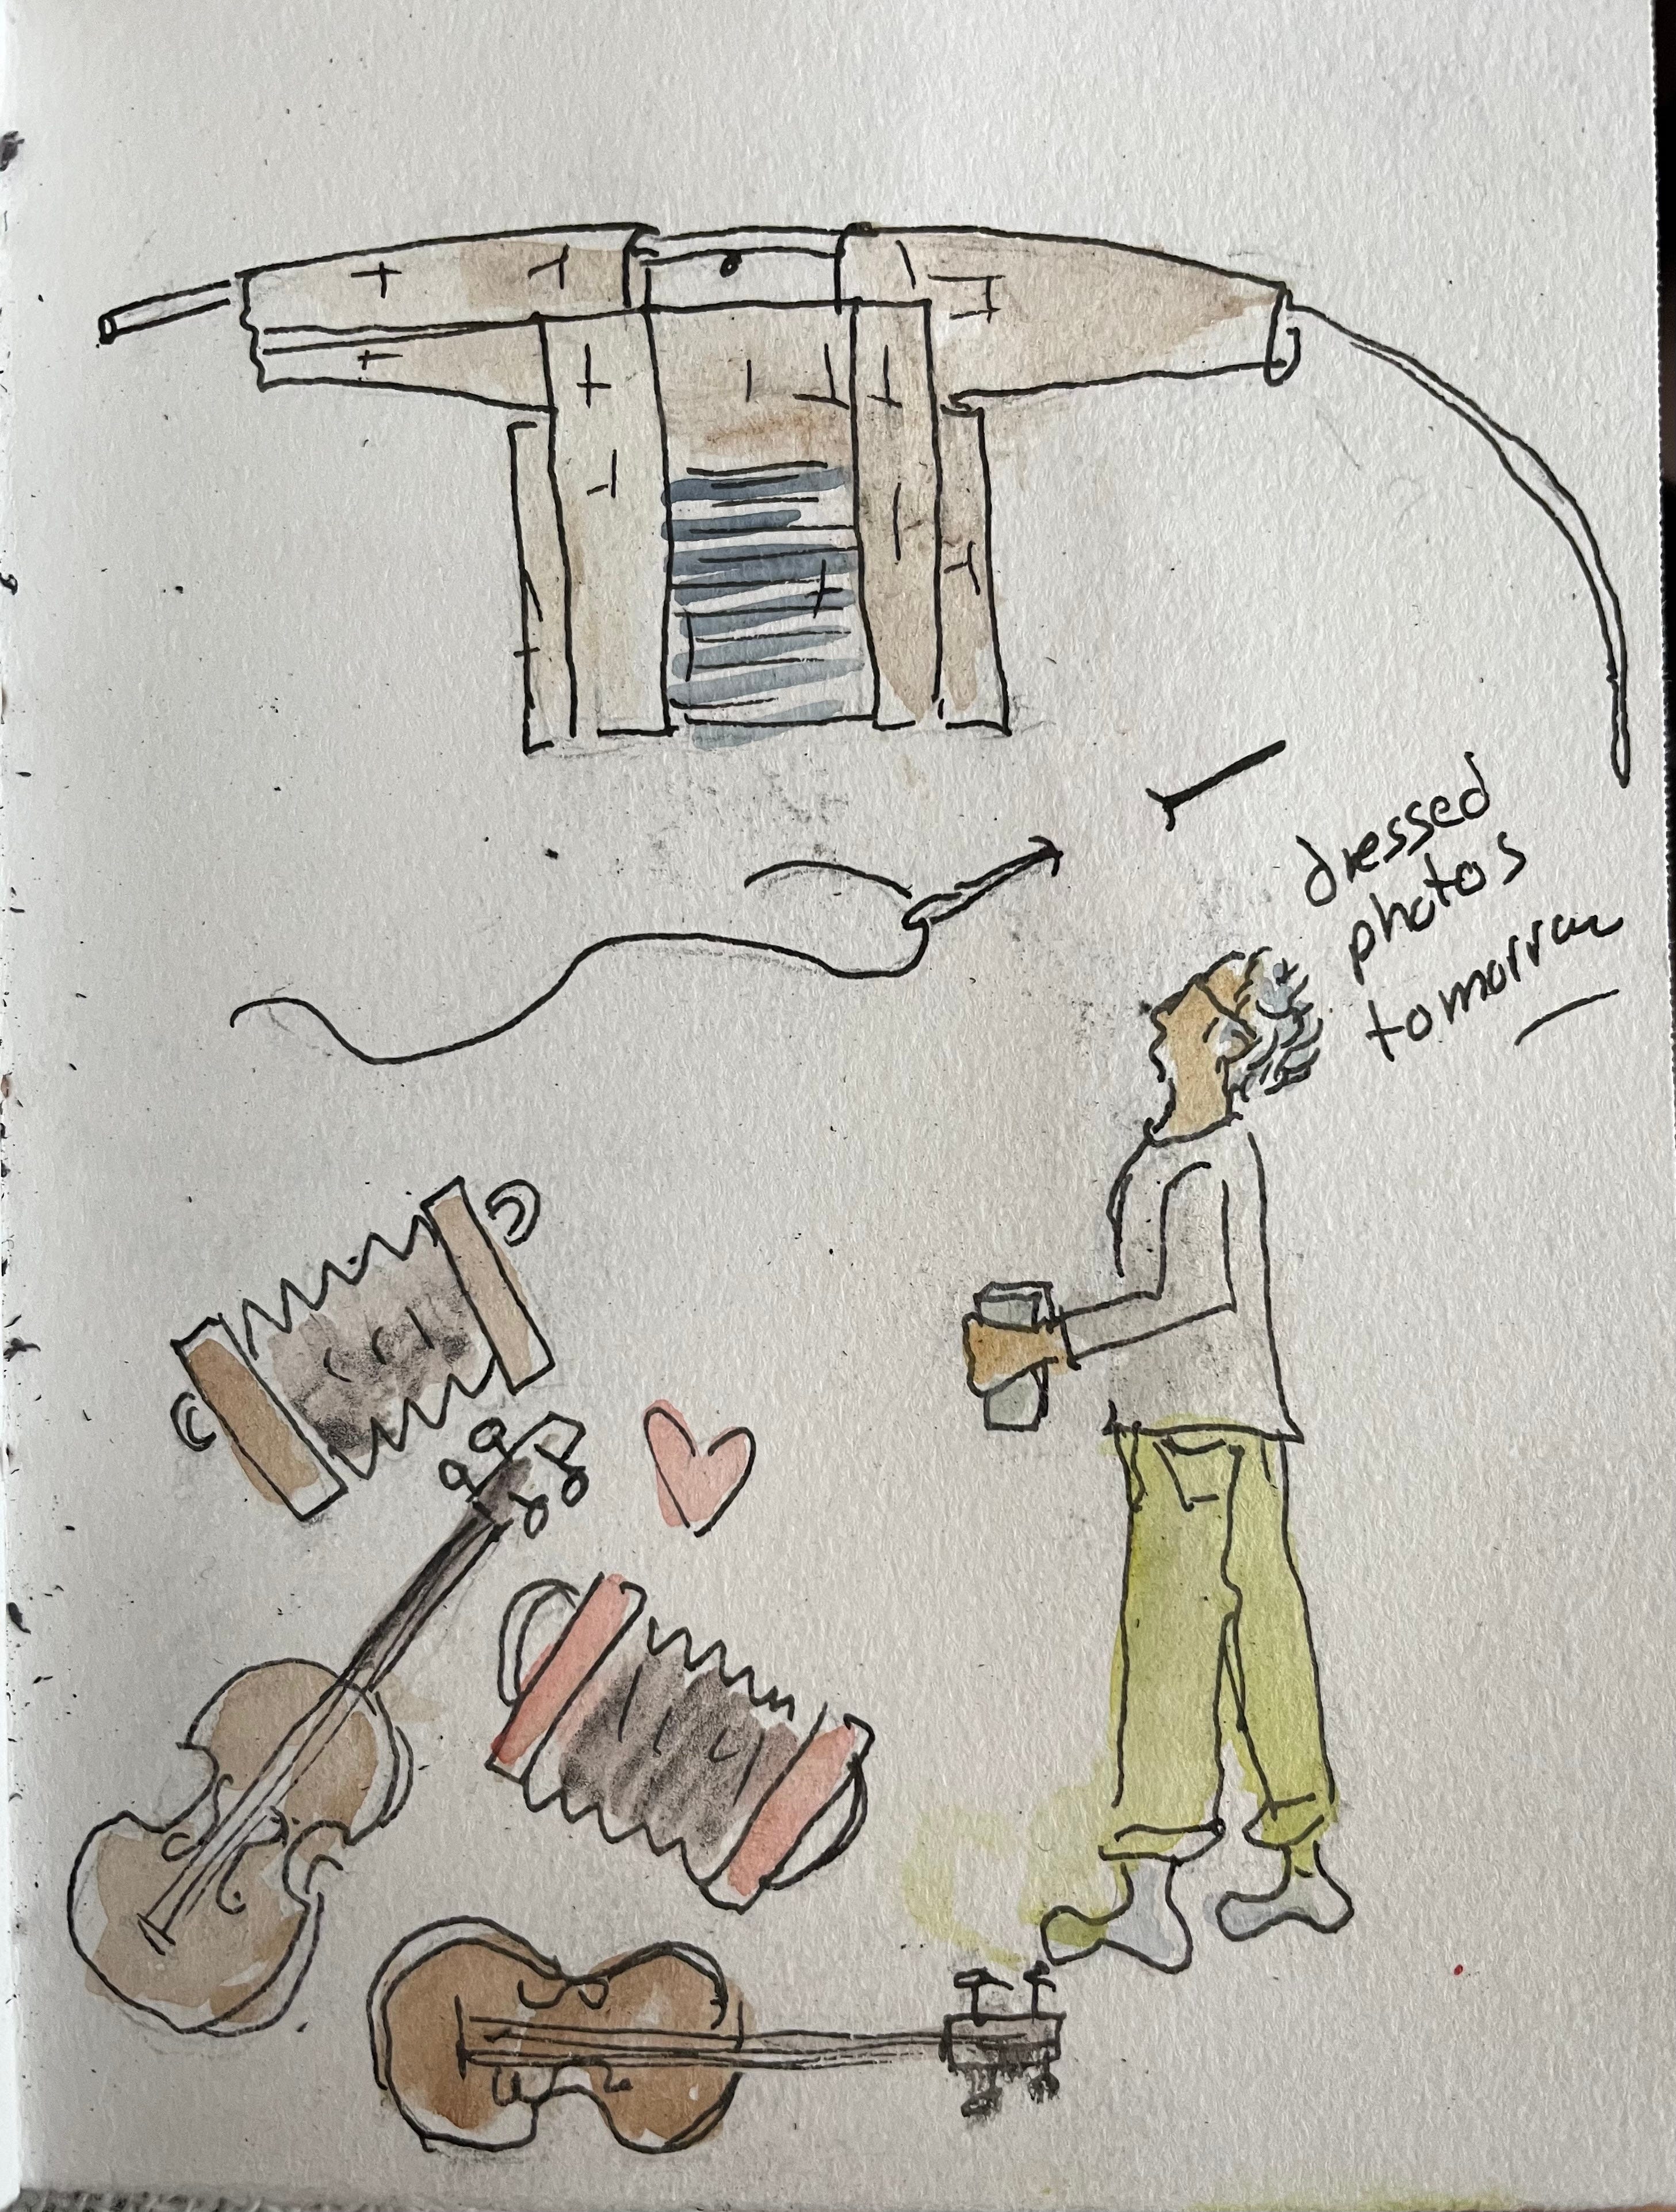 dressed
photos
tomorrow